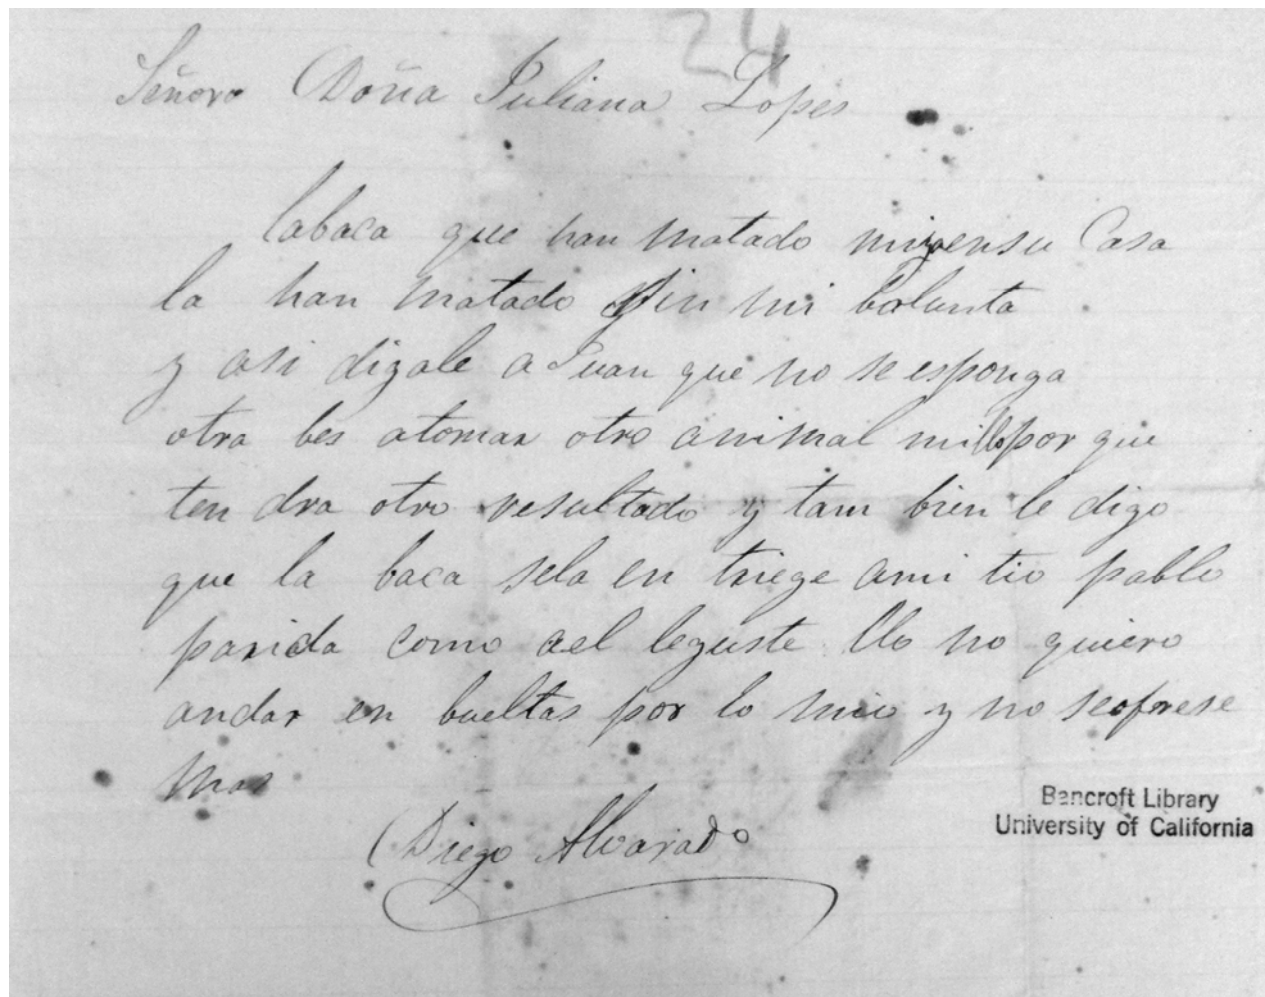 24
Señora Doña Juliana Lopes
labaca que han matado mia ensu Casa
la han matado sin mi bolunta
y asi digale a Juan que no se esponga
otra bes atomar otro animal millo por que
ten dra otro resultado y tam bien le digo
que la baca sela en triege ami tio pablo
parida como ael leguste Llo no quiero
andar en bueltas por lo mio y no seofrese
mas
Diego Alvarado
Bancroft Library
University of California